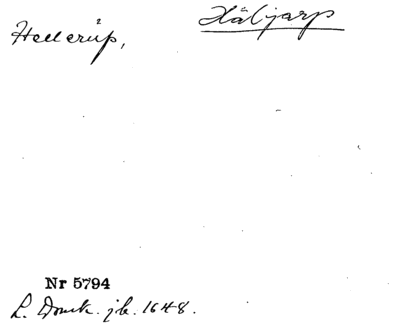 Hellerup,
Häljarp
Nr 5794
L. Domk. jb. 1648.